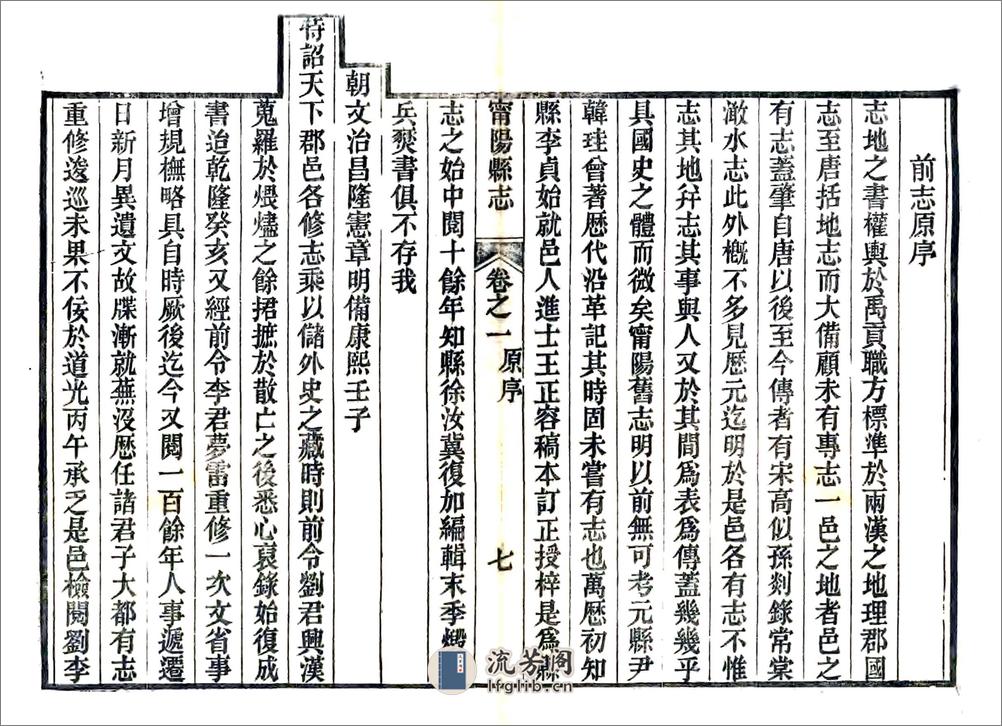 前志原序
志地之書權輿於禹貢職方標準於兩漢之地理郡國
志至唐括地志而大備顧未有專志一邑之地者邑之
有志蓋肇自唐以後至今傳者有宋高似孫剡錄常棠
澉水志此外概不多見歷元迄明於是邑各有志不惟
志其地幷志其事與人又於其間爲表爲傳蓋幾幾乎
具國史之體而微矣甯陽舊志明以前無可考元縣尹
韓珪曾著歷代沿革記其時固未嘗有志也萬歷初知
縣李貞始就邑人進士王正容稿本訂正授梓是爲縣
甯陽縣志
卷之一 原序
七
志之始中閱十餘年知縣徐汝冀復加編輯末季燬
兵燹書俱不存我
朝文治昌隆憲章明備康熙壬子
特詔天下郡邑各修志乘以儲外史之藏時則前令劉君興漢
蒐羅於煨燼之餘捃摭於散亡之後悉心裒錄始復成
書迨乾隆癸亥又經前令李君夢雷重修一次文省事
增規橅略具自時厥後迄今又閱一百餘年人事遞遷
日新月異遺文故牒漸就蕪沒歷任諸君子大都有志
重修逡巡未果不佞於道光丙午承乏是邑檢閱劉李
流芳閣
lfglib.cn